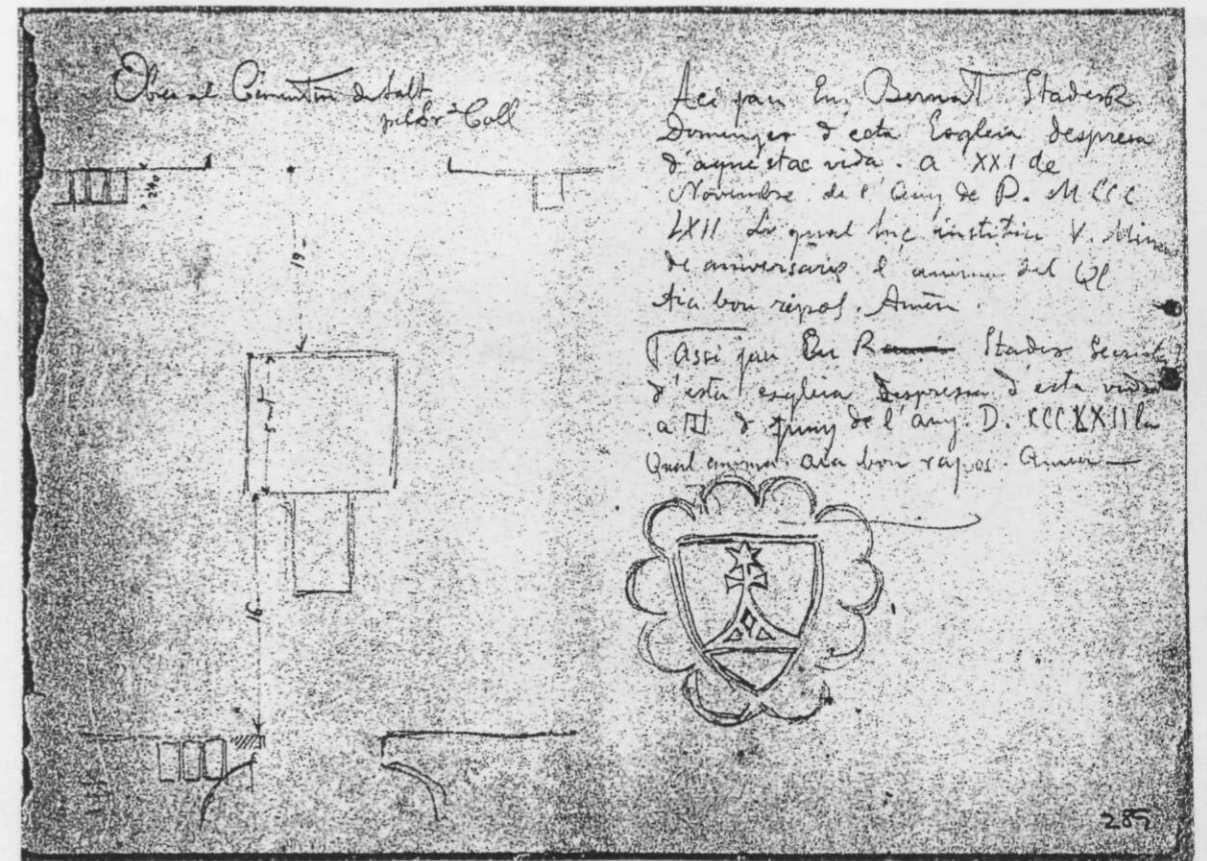 Obres al Cementiri de Salt
pel Sr Coll
240
19
5 mt
16
Aci jau En Bernat Stader
Dominger d'esta Esgleia despresa
d'aquestae vida. a XXI de
Novembre de l'any de P. MCCC
LXII Lo qual hic instituí V. Mine
de aniversario l'anima del Ql
Aia bon repos. Amen.
Assi jau En R Stader Secrista
d'esta esgleia Despresa d'esta vida
a III d juny de l'any. D. CCCXXII la
Qual anima aia bon repos. Amen—
289